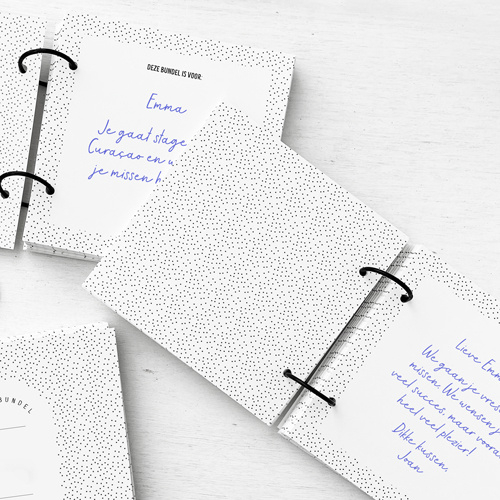 DEZE BUNDEL IS VOOR:
Emma
Je gaat stage
Curaçao en u
je missen h
Lieve Emm
We gaan je vres
missen. We wensen j
veel succes, maar voora
heel veel plezier!
Dikke kussen,
Joan
BUNDEL